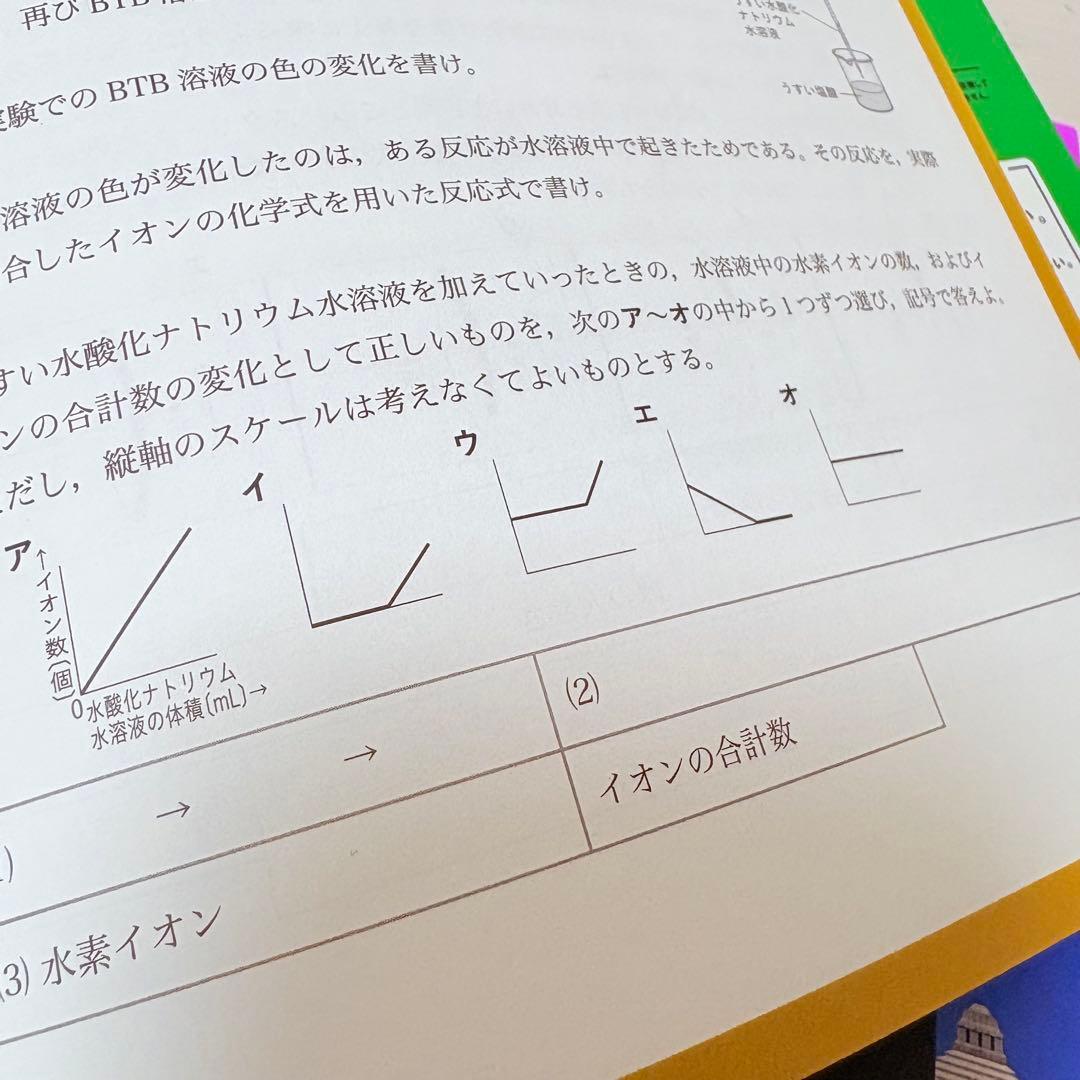 再び BTB
うすい水酸化
ナトリウム
水溶液
うすい塩酸
実験での BTB 溶液の色の変化を書け。
溶液の色が変化したのは，ある反応が水溶液中で起きたためである。その反応を，実際
合したイオンの化学式を用いた反応式で書け。
すい水酸化ナトリウム水溶液を加えていったときの，水溶液中の水素イオンの数，およびイ
ンの合計数の変化として正しいものを，次のア〜オの中から1つずつ選び，記号で答えよ。
だし，縦軸のスケールは考えなくてよいものとする。
ア
イ
ウ
エ
オ
↑イオン数(個)
0
水酸化ナトリウム
水溶液の体積(mL)→
→ →
(2)
(3) 水素イオン
イオンの合計数
い。